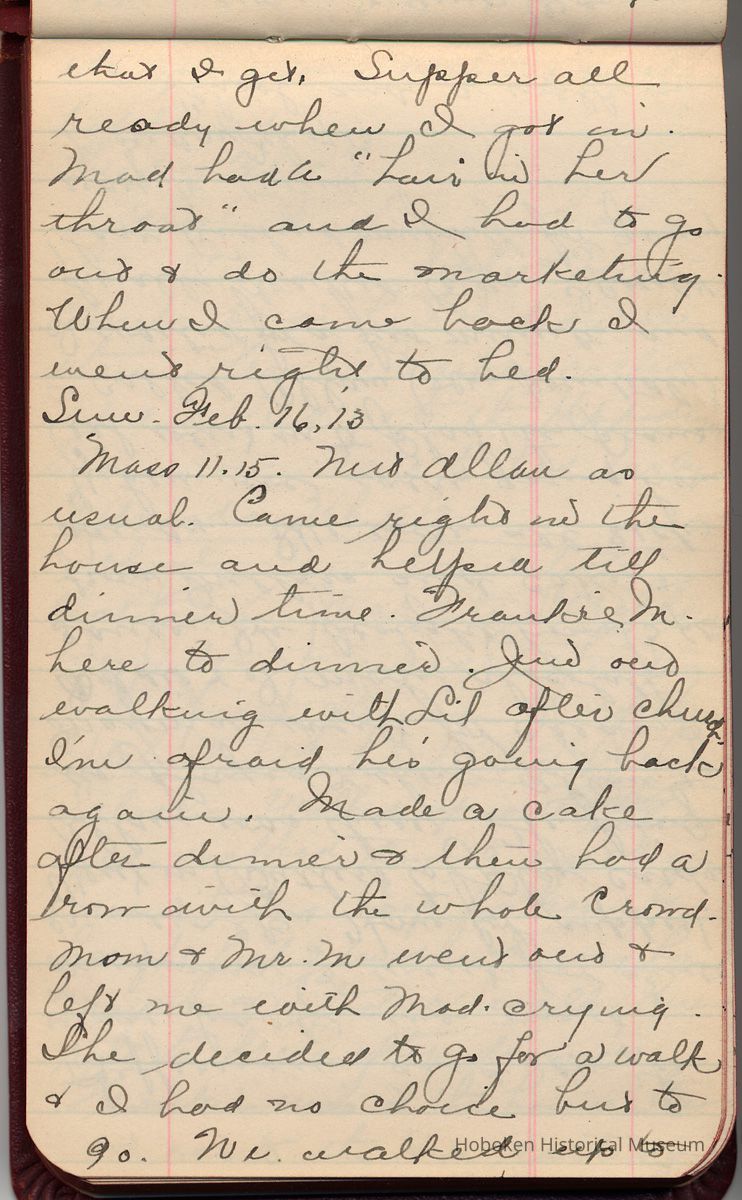 that I get. Supper all
ready when I got in.
Mad had a "hair in her
throat" and I had to go
out & do the marketing.
When I came back I
went right to bed.
Sun. Feb. 16, 13
Mass 11.15. Met Allan as
usual. Came right in the
house and helped till
dinner time. Frankie M.
here to dinner. Jim out
walking with Lil after church.
I'm afraid he's going back
again. Made a cake
after dinner & then had a
row with the whole crowd.
Mom & Mr. M went out &
left me with Mad. crying.
She decided to go for a walk
& I had no choice but to
go. We walked up to
Hoboken Historical Museum